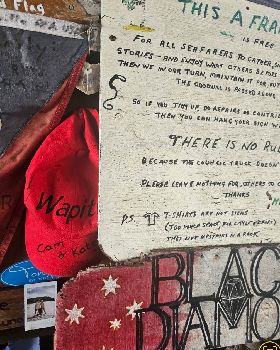 Flag
THIS A FRA
IS FREE
FOR ALL SEAFARERS TO GATHER, SH
STORIES - AND ENJOY WHAT OTHERS BEFORE
THEN WE IN OUR TURN, MAINTAIN IT FOR FUT
THE GOODWILL IS PASSED ALONG
SO IF YOU TIDY UP DO REPAIRS OR CONTRIB
THEN YOU CAN HANG YOUR SIGN WI
THERE IS NO RU
BECAUSE THE COUNCIL TRUCK DOESN'T
PLEASE LEAVE NOTHING FOR OTHERS TO C
THANKS
P.S. T-SHIRTS ARE NOT SIGNS
(TOO MUCH SPACE FOR LATER EVENTS)
THIS LIVE UPSTAIRS IN A RACK
Wapiti
Cam
& Kat
BLAC
DIAMO